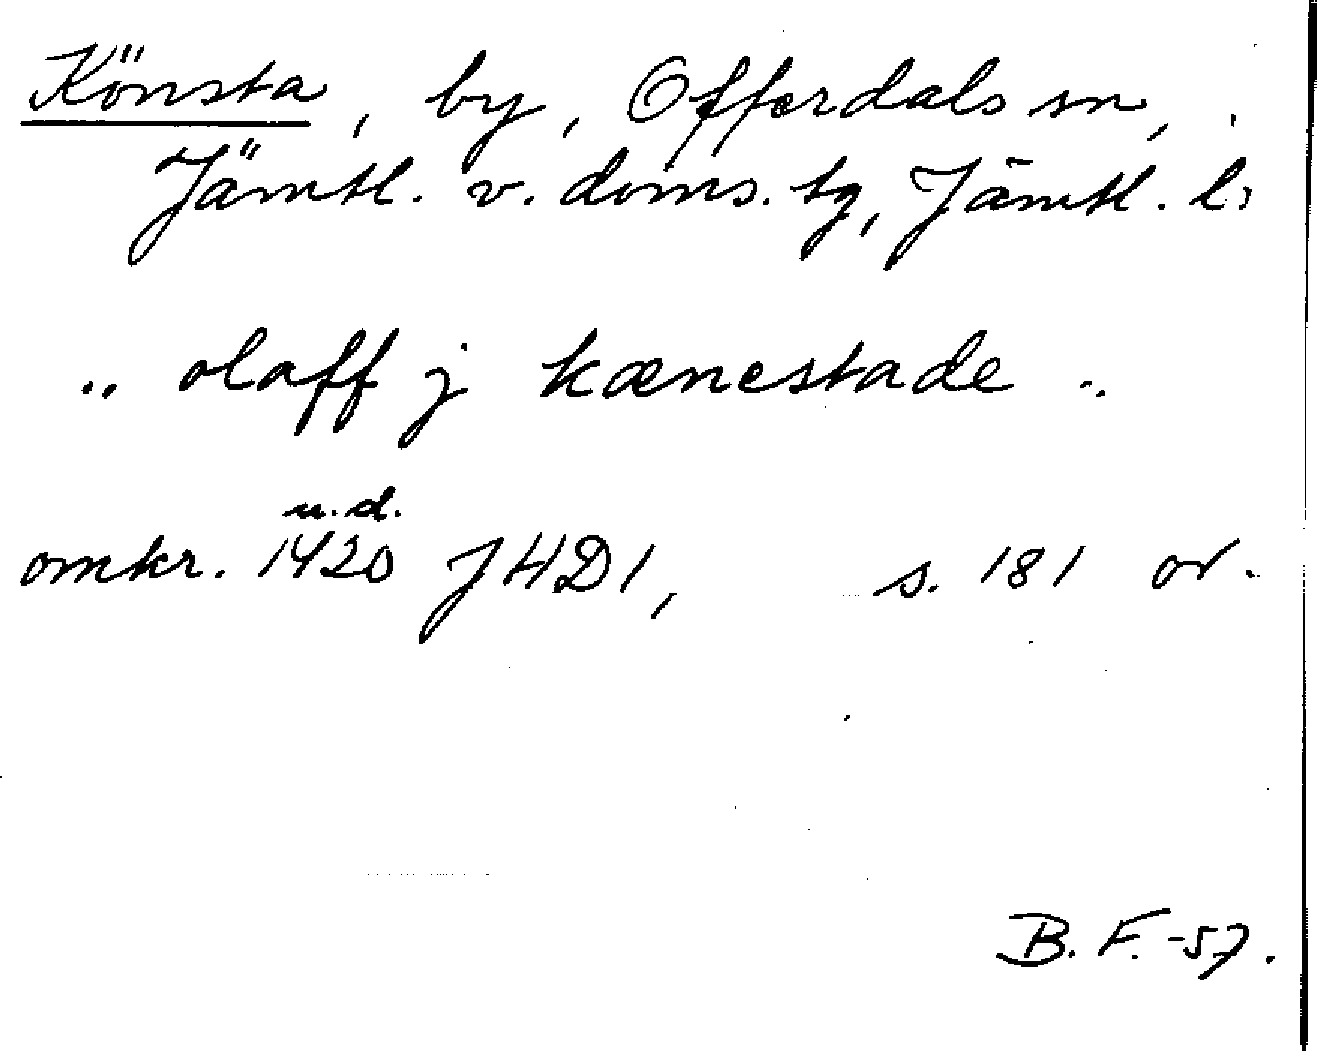 Könsta, by, Offerdals sn,
Jämtl. v. doms. tg, Jämtl. l.
.. olaff j kænestade ..
u.d.
omkr. 1420 JHD1, s. 181 or.
B. F. -57.